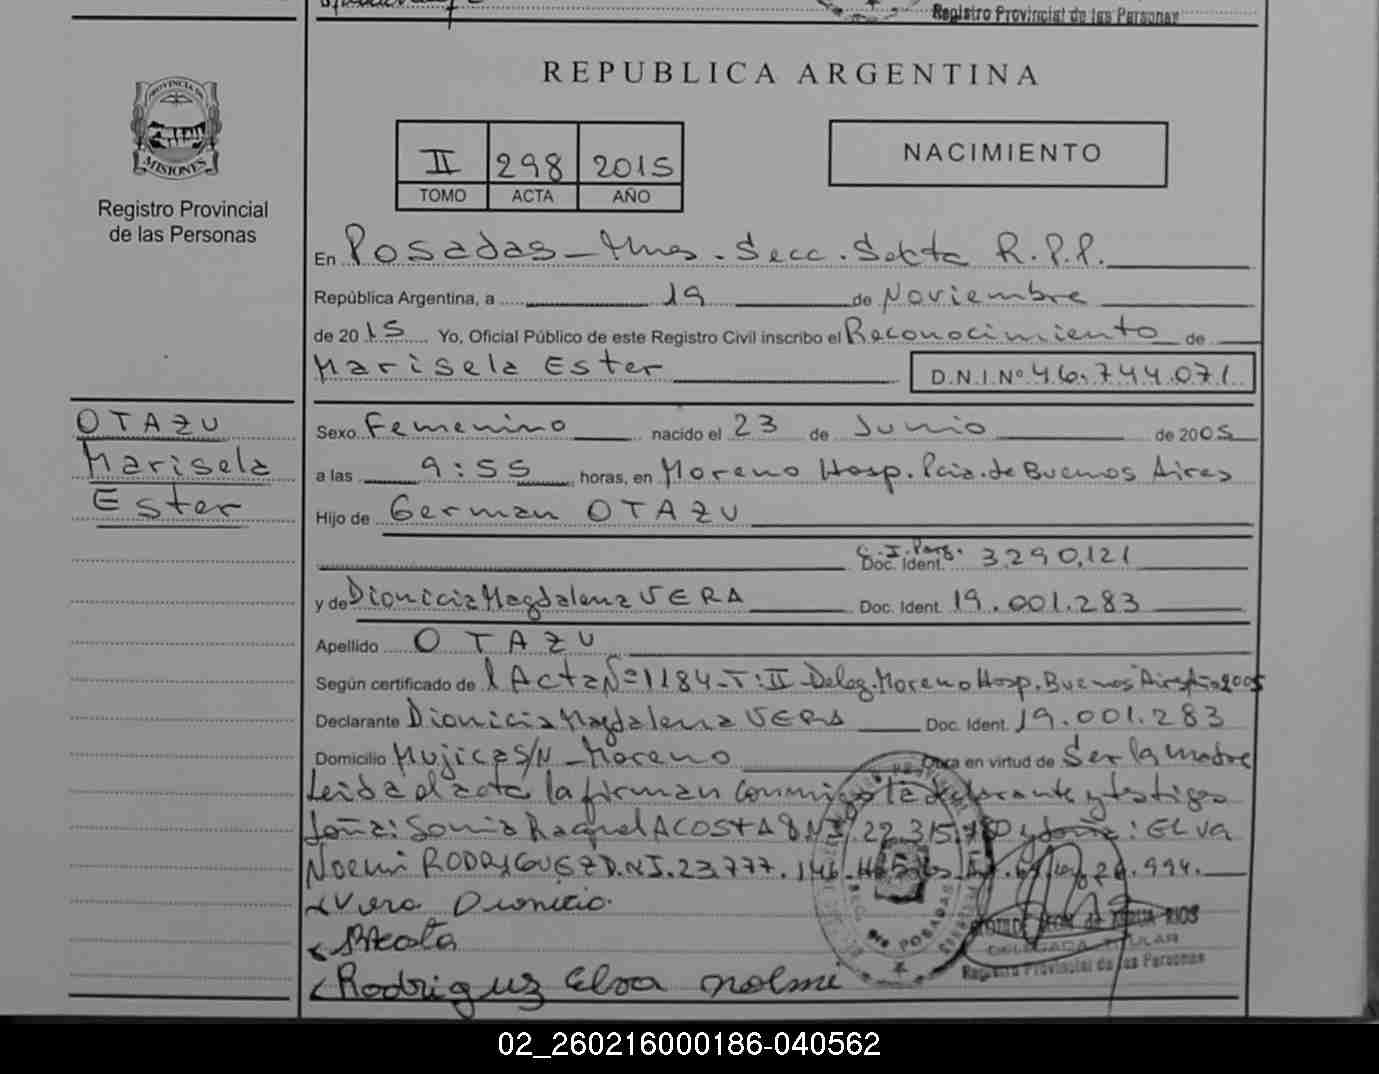 Registro Provincial de las Personas
PROVINCIA DE
MISIONES
Registro Provincial
de las Personas
REPUBLICA ARGENTINA
II 298 2015
TOMO ACTA AÑO
NACIMIENTO
En Posadas - Mnes. Secc. Sexta R.P.P.
República Argentina, a 19 de Noviembre
de 2015 Yo, Oficial Público de este Registro Civil inscribo el Reconocimiento de
Marisela Ester D.N.I. Nº 46.744.071
OTAZU
Marisela
Ester
Sexo Femenino nacido el 23 de Junio de 2005
a las 9:55 horas, en Moreno Hosp. Pcia. de Buenos Aires
Hijo de German OTAZU
C.I. Parg. Doc. Ident. 3.290.121
y de Dionicia Magdalena VERA Doc. Ident. 19.001.283
Apellido OTAZU
Según certificado de l Acta Nº 1184-T:II-Deleg. Moreno Hosp. Buenos Aires Año 2005
Declarante Dionicia Magdalena VERA Doc. Ident. 19.001.283
Domicilio Mujica S/N - Moreno Obra en virtud de Ser la madre
Leida el acta, la firman conmigo la declarante y testigos
doña: Sonia Raquel ACOSTA D.N.I. 22.315. y doña: ELVA
Noemi RODRIGUEZ D.N.I. 23.777.146.
Vera Dionicia
SRAcosta
Rodriguez Elva noemi
POSADAS
DELEGADA TITULAR
Registro Provincial de las Personas
02_260216000186-040562